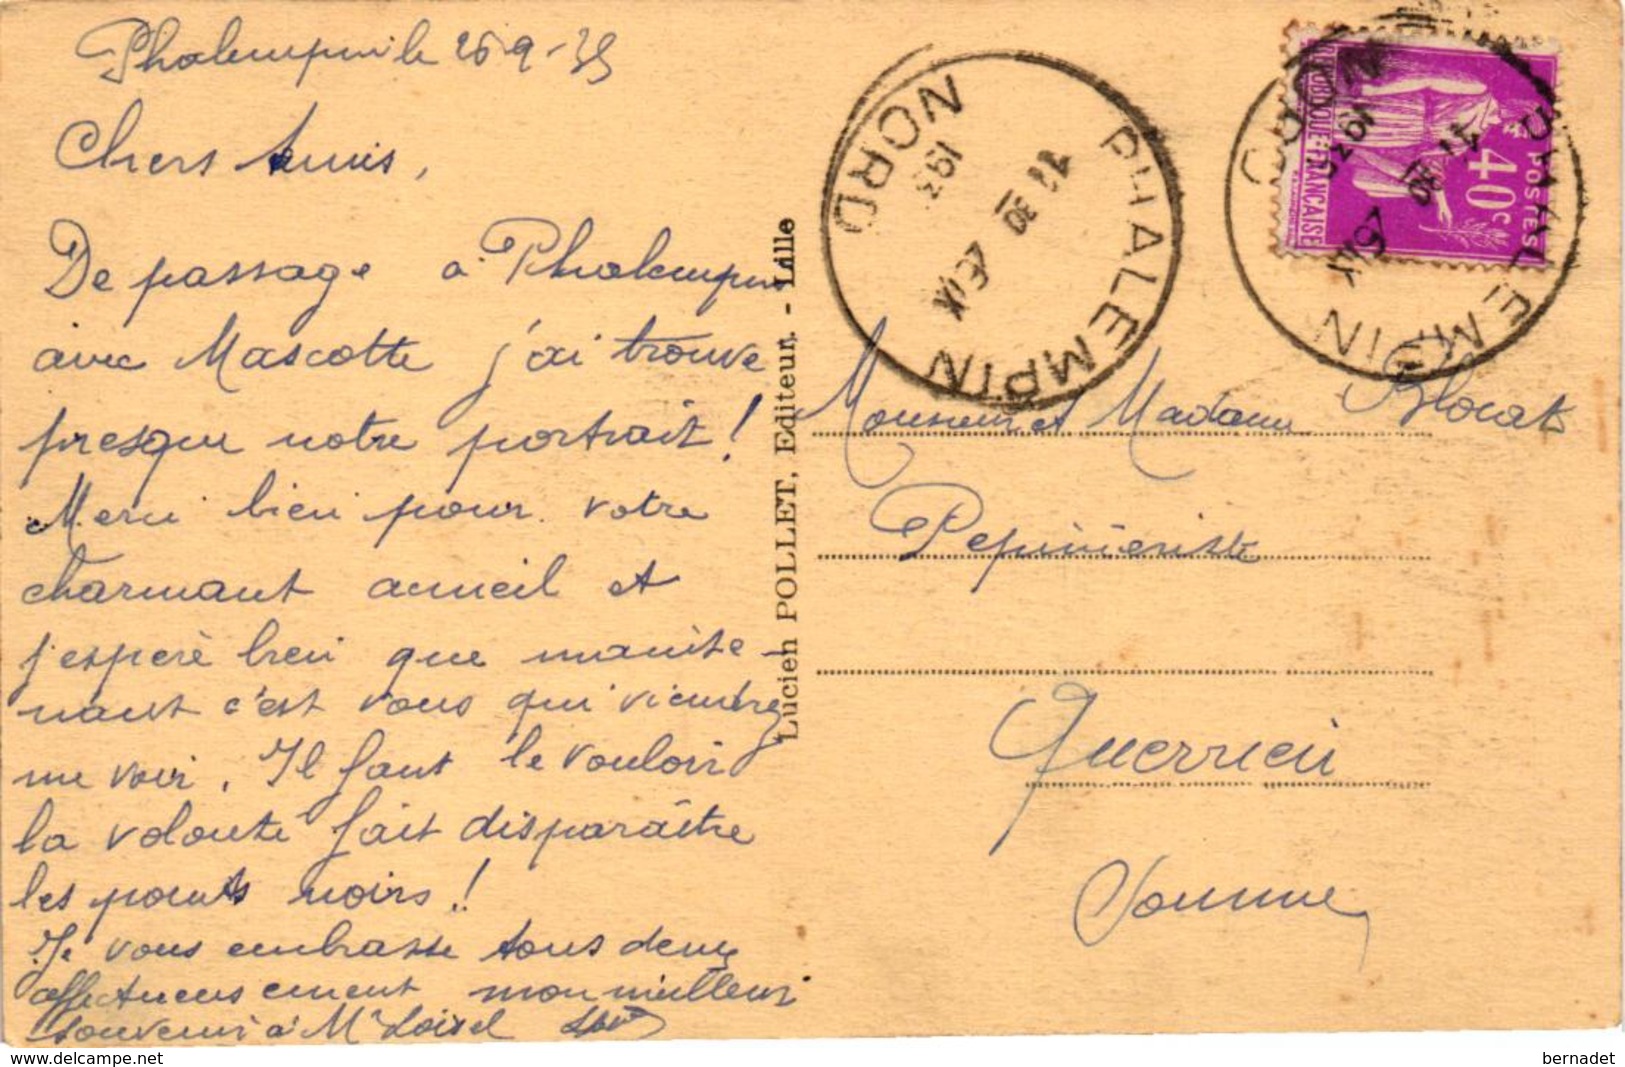 Phalempin le 26-9-35
Chers Amis,
De passage à Phalempin
avec Mascotte j'ai trouve
presque notre portrait !
Merci bien pour votre
charmant acceuil et
j'espère bien que mainte-
nant c'est vous qui viendrez
me voir. Il faut le vouloir
la volonté fait disparaître
les points noirs !
Je vous embrasse tous deux
affectueusement mon meilleur
souvenir à Mr Loisel
Lucien POLLET, Editeur. - Lille
PHALEMPIN
NORD
POSTES
40c
REPUBLIQUE FRANÇAISE
PHALEMPIN
NORD
Monsieur et Madame Blocat
Pepinièriste
Querrieu
Somme
delcampe.net
bernadet